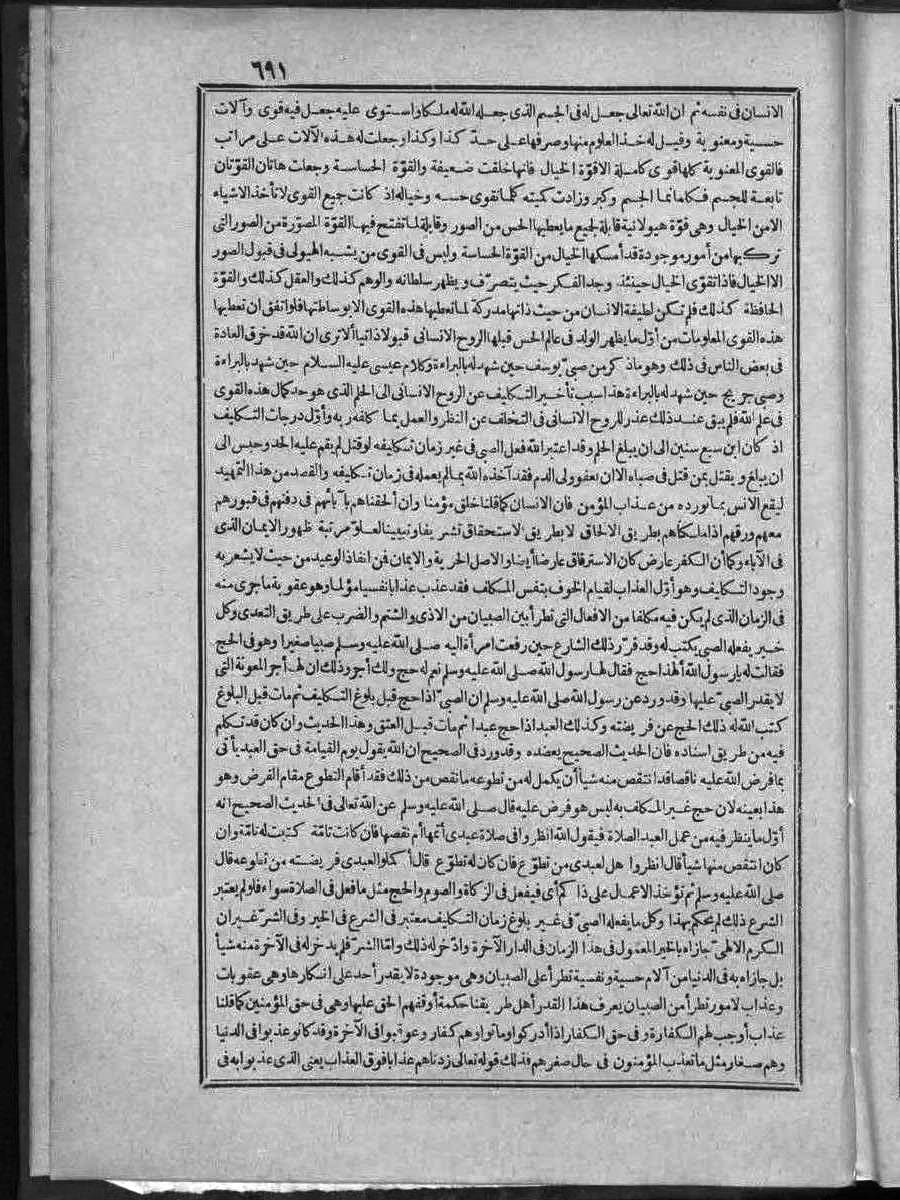 ٦٩١
الانسان فى نفسه ثم ان الله تعالى جعل له فى الجسم الذى جعله الله له ملكا واستوى عليه جعل فيه قوى وآلات
حسية ومعنوية وقيل له خذ العلوم منها وصرفها على حد كذا وكذا وجعلت له هذه الآلات على مراتب
فالقوى المعنوية كلها قوى كاملة الا قوة الخيال فانها خلقت ضعيفة والقوة الحساسة وجعلت هاتان القوتان
تابعة للجسم فكلما نما الجسم وكبر وزادت كميته كلما تقوى حسه وخياله اذ كانت جميع القوى لا تأخذ الاشياء
الا من الخيال وهى قوة هيولانية قابلة لجميع ما يعطيها الحس من الصور وقابلة لما تفتح فيها القوة المصورة من الصور التى
تركبها من أمور موجودة قد أمسكها الخيال من القوة الحساسة وليس فى القوى من يشبه الهيولى فى قبول الصور
الا الخيال فاذا تقوى الخيال حينئذ وجد الفكر حيث يتصرف ويظهر سلطانه والوهم كذلك والعقل كذلك والقوة
الحافظة كذلك فلم تكن لطيفة الانسان من حيث ذاتها مدركة لما تعطيها هذه القوى الا بوساطتها فلو اتفق ان تعطيها
هذه القوى المعلومات من أول ما يظهر الولد فى عالم الحس قبلها الروح الانسانى قبولا ذاتيا ألا ترى ان الله قد خرق العادة
فى بعض الناس فى ذلك وهو ما ذكر من صبى يوسف حين شهد له بالبراءة وكلام عيسى عليه السلام حين شهد بالبراءة
وصبى جريج حين شهد له بالبراءة هذا سبب تأخير التكليف عن الروح الانسانى الى الحلم الذى هو حد كمال هذه القوى
فى علم الله فلم يبق عند ذلك عذر للروح الانسانى فى التخلف عن النظر والعمل بما كلفه ربه وأول درجات التكليف
اذ كان ابن سبع سنين الى ان يبلغ الحلم وقد اعتبر الله فعل الصبى فى غير زمان تكليفه لو قتل لم يقم عليه الحد وحبس الى
ان يبلغ ويقتل بمن قتل فى صباه الا ان يعفو ولى الدم فقد آخذه الله بما لم يعمله فى زمان تكليفه والقصد من هذا التمهيد
ليقع الانس بما نورده من عذاب المؤمن فان الانسان كما قلنا خلق مؤمنا وان ألحقناهم بآبائهم فى دفنهم فى قبورهم
معهم ورقهم اذا ملكناهم بطريق الالحاق لا بطريق الاستحقاق تشريفا وتبيينا لعلو مرتبة ظهور الايمان الذى
فى الآباء وكما أن الكفر عارض كان الاسترقاق عارضا أيضا والاصل الحرية والايمان فمن انفاذ الوعيد من حيث لا يشعر به
وجود التكليف وهو أول العذاب لقيام الخوف بنفس المكلف فقد عذب عذابا نفسيا مؤلما وهو عقوبة ما جرى منه
فى الزمان الذى لم يكن فيه مكلفا من الافعال التى تطرأ بين الصبيان من الاذى والشتم والضرب على طريق التعدى وكل
خير يفعله الصبى يكتب له وقد قرر ذلك الشارع حين رفعت امرأة اليه صلى الله عليه وسلم صبيا صغيرا وهو فى الحج
فقالت له يا رسول الله ألهذا حج فقال لها رسول الله صلى الله عليه وسلم نعم له حج ولك أجر وذلك ان لها أجر المعونة التى
لا يقدر الصبى عليها وقد ورد عن رسول الله صلى الله عليه وسلم ان الصبى اذا حج قبل بلوغ التكليف ثم مات قبل البلوغ
كتب الله له ذلك الحج عن فريضته وكذلك العبد اذا حج عبدا ثم مات قبل العتق وهذا الحديث وان كان قد تكلم
فيه من طريق اسناده فان الحديث الصحيح يعضده وقد ورد فى الصحيح ان الله يقول يوم القيامة فى حق العبد يأتى
بما فرض الله عليه ناقصا قد انتقص منه شيأ أن يكمل له من تطوعه ما نقص من ذلك فقد أقام التطوع مقام الفرض وهو
هذا بعينه لان حج غير المكلف به ليس هو فرض عليه قال صلى الله عليه وسلم عن الله تعالى فى الحديث الصحيح انه
أول ما ينظر فيه من عمل العبد الصلاة فيقول الله انظروا فى صلاة عبدى أتمها أم نقصها فان كانت تامة كتبت له تامة وان
كان انتقص منها شيأ قال انظروا هل لعبدى من تطوع فان كان له تطوع قال أكملوا لعبدى فريضته من تطوعه قال
صلى الله عليه وسلم ثم تؤخذ الاعمال على ذاكم أى فيفعل فى الزكاة والصوم والحج مثل ما فعل فى الصلاة سواء فلو لم يعتبر
الشرع ذلك لم يحكم بهذا وكل ما يفعله الصبى فى غير بلوغ زمان التكليف معتبر فى الشرع فى الخير وفى الشر غير ان
الكرم الالهى جازاه بالخير المعمول فى هذا الزمان فى الدار الآخرة وادخر له ذلك وأما الشر فلم يدخر له فى الآخرة منه شيأ
بل جازاه به فى الدنيا من آلام حسية ونفسية تطرأ على الصبيان وهى موجودة لا يقدر أحد على انكارها وهى عقوبات
وعذاب لامور تطرأ من الصبيان يعرف هذا القدر أهل طريقنا حكمة أوقفهم الحق عليها وهى فى حق المؤمنين كما قلنا
عذاب أوجب لهم الكفارة وفى حق الكفار اذا أدركوا وماتوا وهم كفار وعوقبوا فى الآخرة وقد كانوا عذبوا فى الدنيا
وهم صغار مثل ما تعذب المؤمنون فى حال صغرهم فذلك قوله تعالى زدناهم عذابا فوق العذاب يعنى الذى عذبوا به فى